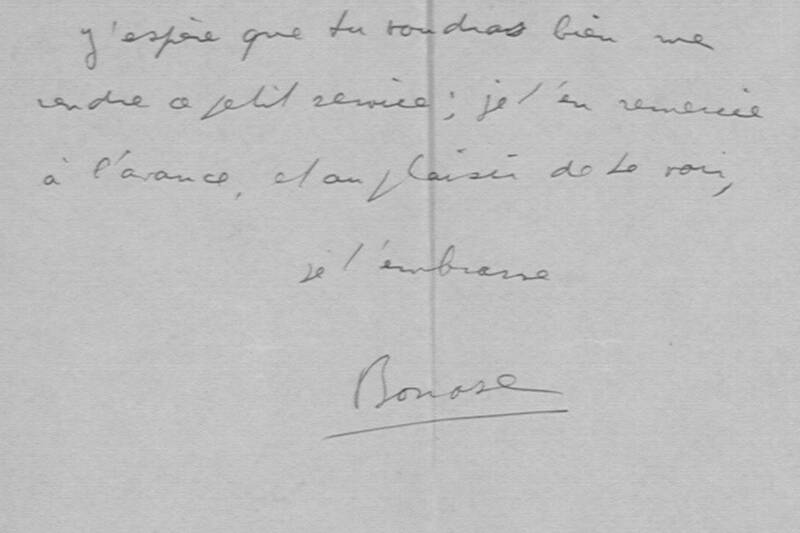 J'espère que tu voudras bien me
rendre ce petit service ; je t'en remercie
à l'avance, et au plaisir de te voir,
je t'embrasse
Bonose